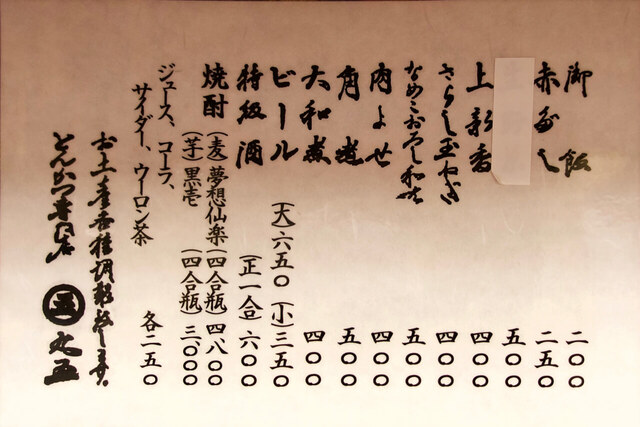 御飯 二〇〇
赤だし 二五〇
五〇〇
上新香 四〇〇
さらし玉ねぎ 四〇〇
なめこおろし和え 五〇〇
肉よせ 四〇〇
角煮 五〇〇
大和煮 四〇〇
ビール (大)六五〇 (小)三五〇
特級酒 (正一合) 六〇〇
焼酎 (麦)夢想仙楽(四合瓶) 四八〇〇
(芋)黒壱 (四合瓶) 三〇〇〇
ジュース、コーラ、
サイダー、ウーロン茶 各二五〇
お土産各種調製致します。
とんかつ専門店 丸五